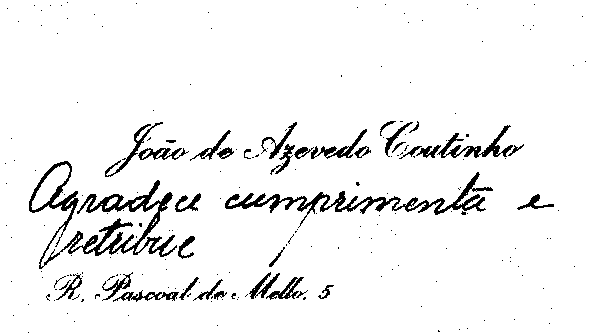 João de Azevedo Coutinho
Agradece cumprimenta e
retribue
R. Pascoal de Mello, 5